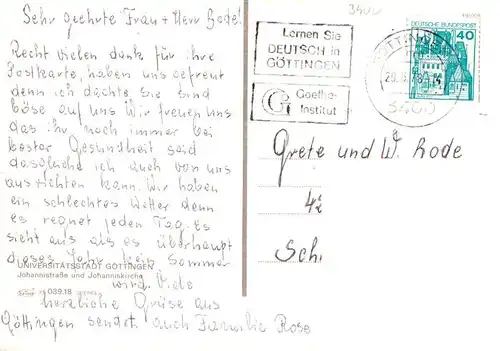 Sehr geehrte Frau + Herr Bode!
Recht vielen dank für ihre
Postkarte, haben uns gefreut
denn ich dachte Sie sind
böse auf uns Wir freuen uns
das ihr noch immer bei
bester Gesundheit seid
dasgleiche ich auch von uns
ausrichten kann. Wir haben
ein schlechtes Wetter denn
es regnet jeden Tag. Es
sieht aus als es überhaupt
dieses Jahr kein Sommer
wird. Viele
herzliche Grüse aus
Göttingen sendet auch Familie Rose
UNIVERSITÄTSSTADT GÖTTINGEN
Johannisstraße und Johanniskirche
039.18
3400
Lernen Sie
DEUTSCH in
GÖTTINGEN
Goethe-
Institut
DEUTSCHE BUNDESPOST
40
GÖTTINGEN
3400
Grete und W. Rode
42
Sch